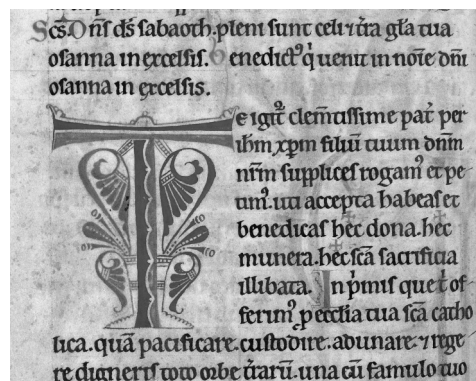 Scs. Dñs ds̄ sabaoth. pleni sunt celi ⁊ t̄ra gl̄a tua
osanna in excelsis. Benedict᷒ q̇ uenit in noīe dn̄i
osanna in excelsis.
Te igit᷑ clem̄tissime pat̄ per
ih̄m xp̄m filiū tuum dn̄m
nr̄m supplices rogam᷒ et pe-
tim᷒. uti accepta habeas et
benedicas hec dona. hec
munera. hec sc̄a sacrificia
illibata. In ṗmis que t᷒ of-
ferim᷒ p eccl̄ia tua sc̄a catho
lica. quā pacificare. custodire. adunare. ⁊ rege
re digneris toto orbe t̄rarū. una cū famulo tuo